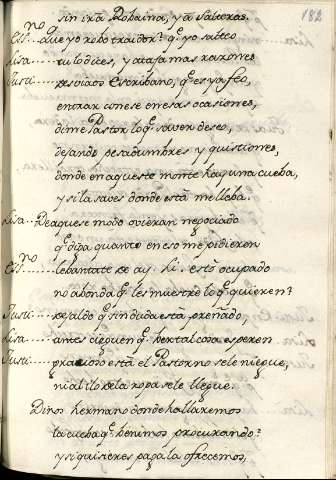 182
sin ira Robaina, y a Saltoras.
Essno. que yo robo traidor? q̃. yo salteo
Lisa..... tu lo dices, y ataja mas razones
Justi.... desviaos Escribano, q̃. es ya feo,
entrar con ese en esas ocasiones,
dime Pastor lo q̃. saver deseo,
dejando pesadumbres y quistiones,
donde en aqueste monte hay una cueba,
y si la saves donde está me lleba.
Lisa.. De aquese modo ovieran negociado
q̃. diga quanto en eso me pidieren
Essno. lebantate de ay. Li. estò ocupado
no abonda q̃. les muestre lo q̃. quieren?
Justi.... dejaldo q̃. sin duda està preñado,
Lisa...... antes cieguen q̃. ber tal cosa esperen
Justi..... gracioso està el Pastor no se le niegue,
ni al ilo de la ropa se le llegue.
Dinos hermano donde hallaremos
la cueba q̃. benimos procurando?
y si quisieres paga la ofrecemos,